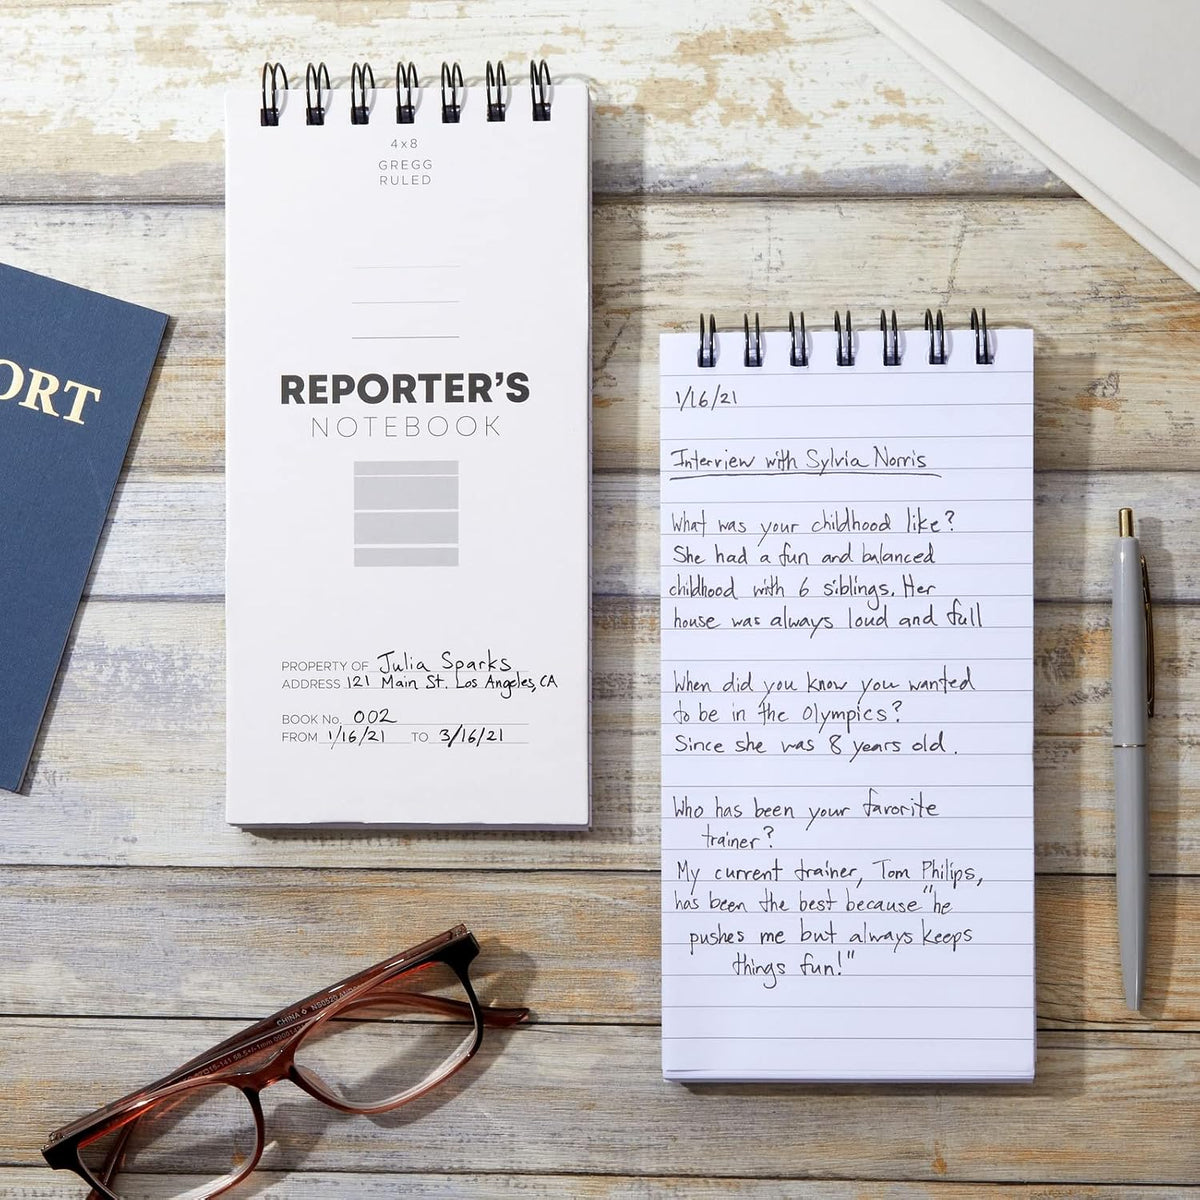 4x8
GREGG
RULED
REPORTER'S
NOTEBOOK
PROPERTY OF Julia Sparks
ADDRESS 121 Main St. Los Angeles, CA
BOOK No. 002
FROM 1/16/21 TO 3/16/21
ORT
1/16/21
Interview with Sylvia Norris
What was your childhood like?
She had a fun and balanced
childhood with 6 siblings. Her
house was always loud and full
When did you know you wanted
to be in the Olympics?
Since she was 8 years old.
Who has been your favorite
trainer?
My current trainer, Tom Philips,
has been the best because "he
pushes me but always keeps
things fun!"
CHINA